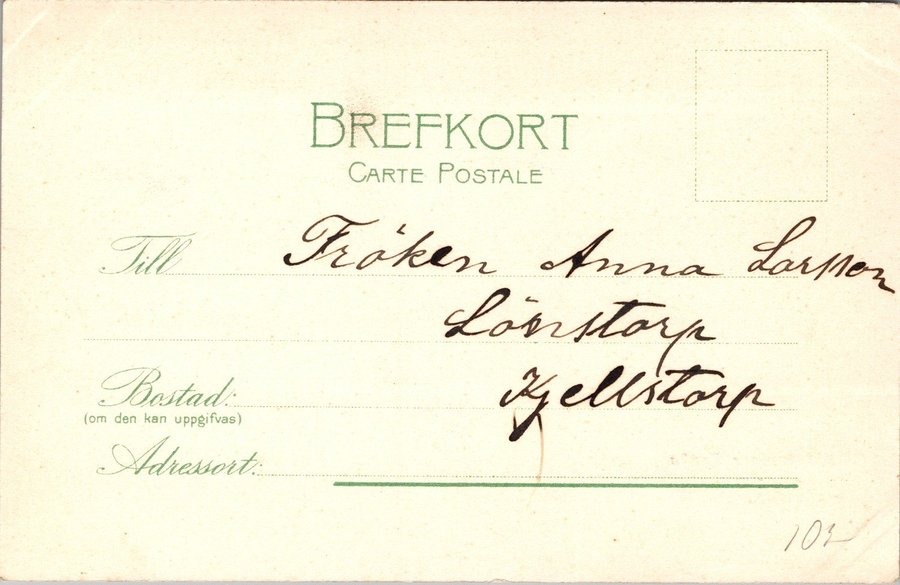 BREFKORT
CARTE POSTALE
Till Fröken Anna Larsson
Lönstorp
Bostad: Kjellstorp
(om den kan uppgifvas)
Adressort: